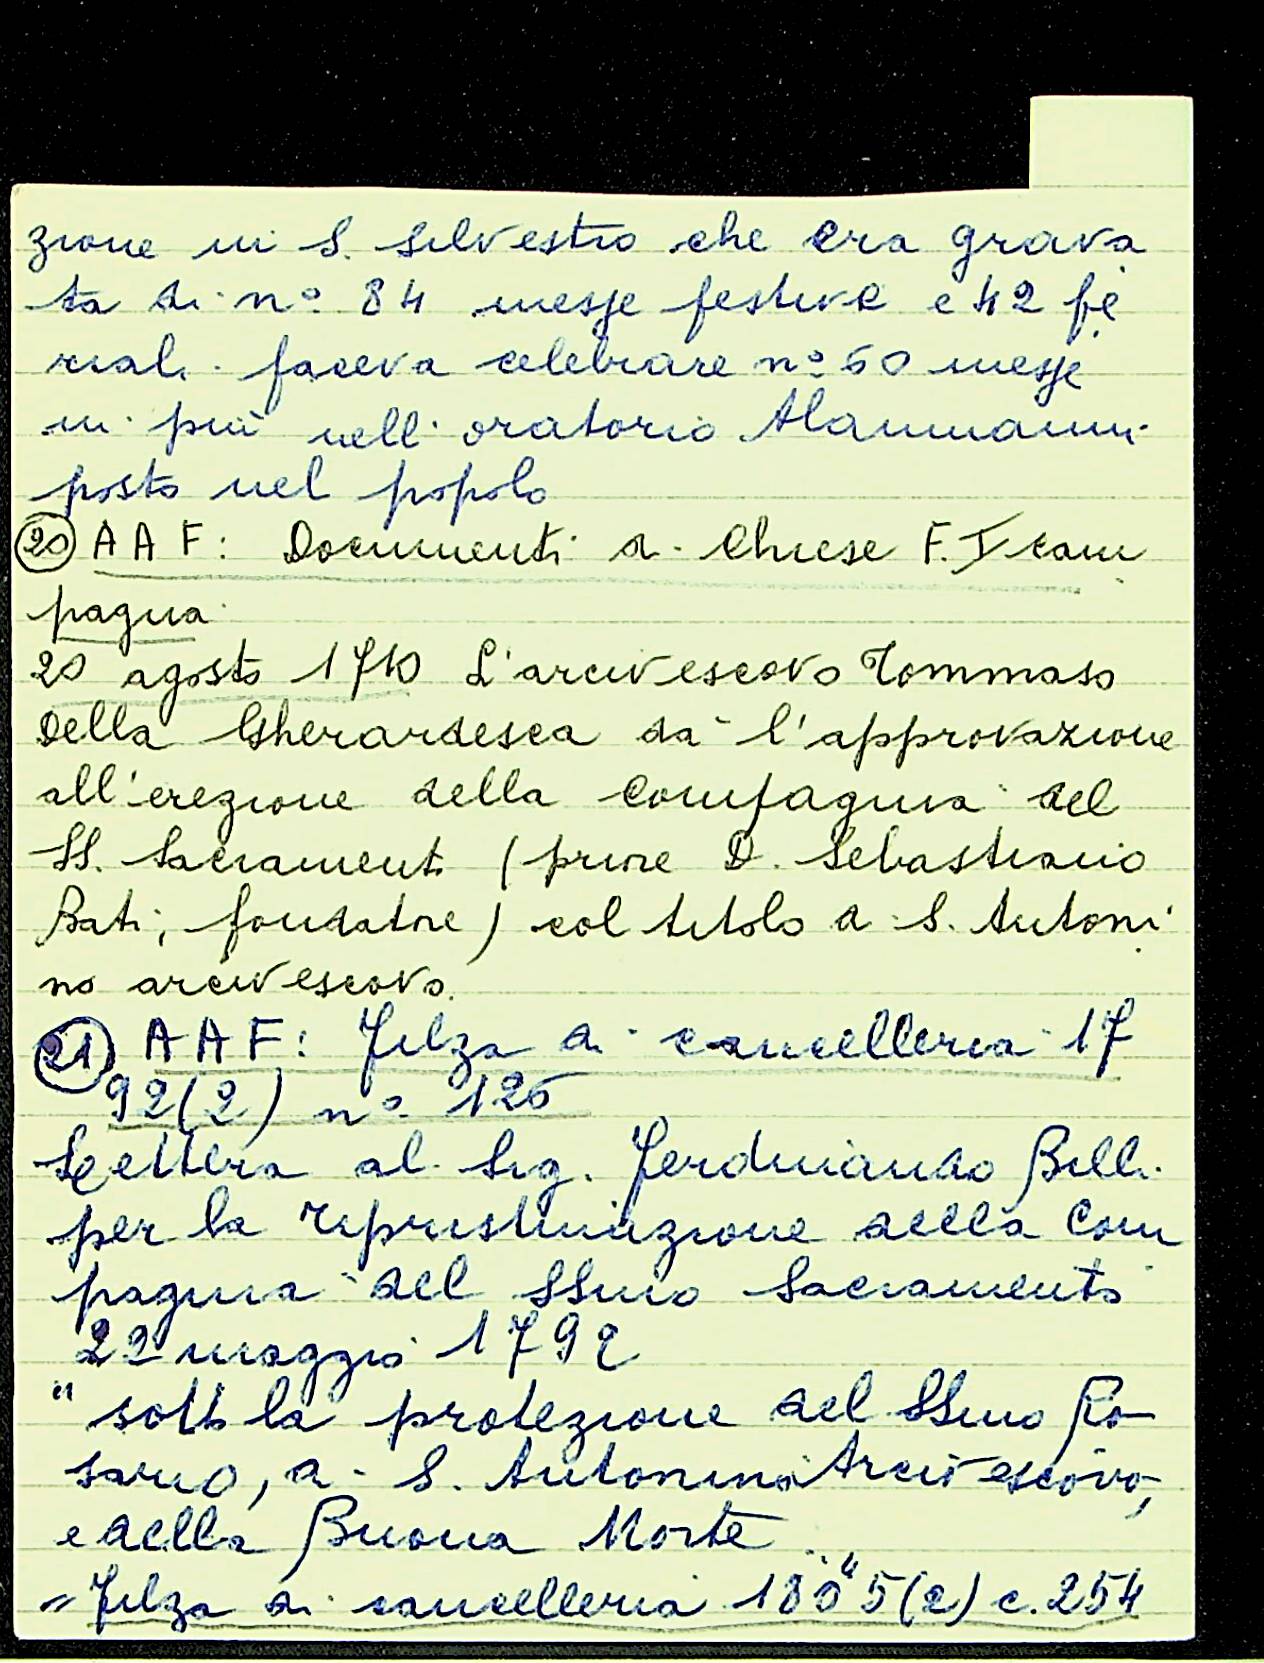 zione in S. Silvestro che era grava
ta di n° 84 messe festive e 42 fe
riali faceva celebrare n° 60 messe
in più nell'oratorio Alamanni
posto nel popolo
20 AAF: Documenti di Chiese F. I cam
pagna
20 agosto 1710 L'arcivescovo Tommaso
Della Gherardesca dà l'approvazione
all'erezione della Compagnia del
SS. Sacramento (priore D. Sebastiano
Bati, fondatore) col titolo di S. Antoni
no arcivescovo.
21 AAF: Filza di cancelleria 17
92(2) n° 126
Lettera al Sig. Ferdinando Billi
per la ripristinazione della Com
pagnia del SSmo Sacramento
22 maggio 1792
"sotto la protezione del SSmo Ro-
sario, di S. Antonino Arcivescovo,
e della Buona Morte"
= Filza di cancelleria 1805(2) c. 254